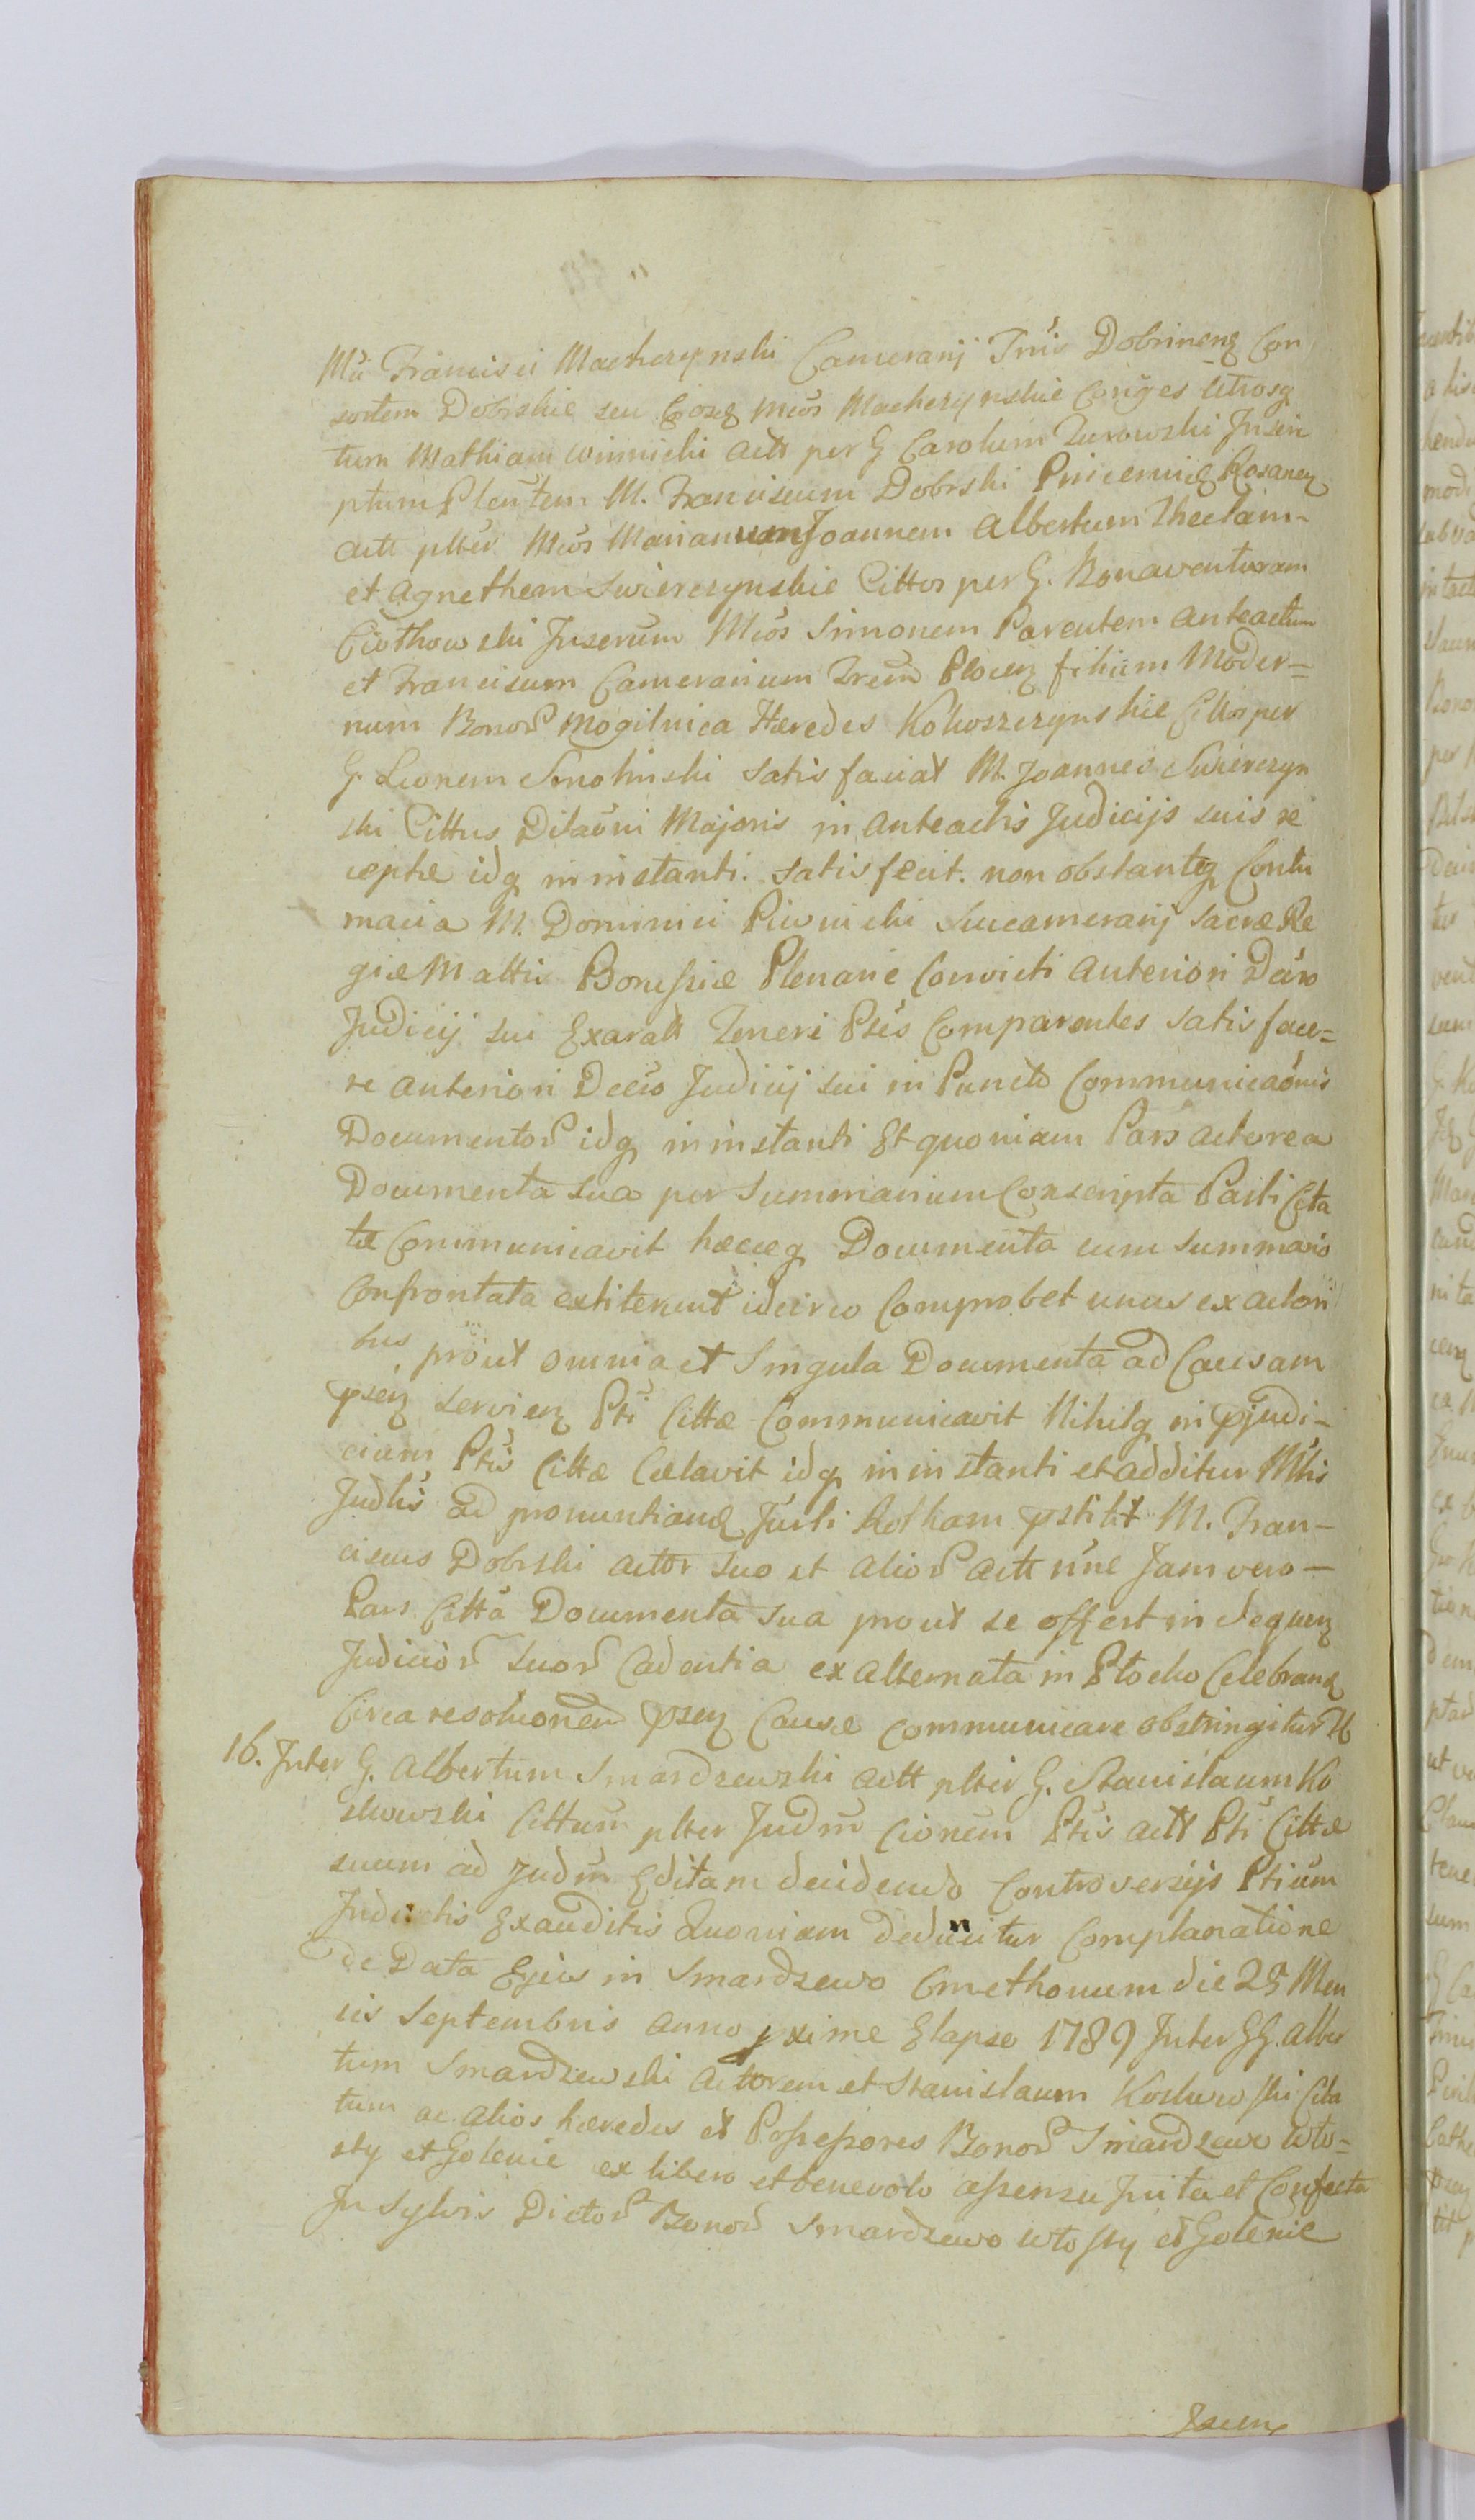 Mci Francisci Macherzynski Camerarij Trris Dobrinenq Con
sortem Dobrskie seu Eosq Mcos Macherzynskie Conjges utrosq
tum Mathiam Winnicki Actt per G Carolum Zurowski Inscri
ptum Plentem M. Franciscum Dobrski Pincernię Rosaneq
Actt plter Mcos Marianum Joannem Albertum Theclam-
et Agnethem Swierczynskie Cittos per G. Bonaventuram
Ciothowski Inserum Mcos Simonem Parentem Anteactum
et Francisum Camerarium Trrum Plocenq filium Moder=
num Bonor Mogilnica Hæredes Kokoszczynskie Cittos per
G. Leonem Smolinski satis faciat M. Joannes Swierczyn
ski Cittus Dilaoni Majoris in Anteactis Judicijs suis re
ceptæ idq in instanti. satis fecit. non obstanteq Contu
macia M. Dominici Piwnicki Succamerarij Sacræ Re
giæ Mattis Borussiæ Plenarie Convicti Anteriori Dcro
Judicij sui Exaratt Teneri Ptes Comparentes satis face=
re anteriori Decro Judicij sui in Puncto Communicaonis
Documentor idq in instanti Et quoniam Pars actorea
Documenta sua per Summarium Conscripta Parti Cita
tæ Communicavit hæceq Documenta cum Summario
Confrontata extiterunt idcirco Comprobet unus ex actori
bus, prout omnia et Singula Documenta ad Causam
psenq serviens Pti Cittæ Communicavit Nihilq in pjudi-
cium Ptis Cittæ Cælavit idq in instanti et additur Mtris
Judlis ad pronuntianq Jurti Rotham pstitit M. Fran-
ciscus Dobrski Actor suo et alior Actt nne Jam vero-
Pars Citta Documenta sua prout se offert in Sequenq
Judicior suor Cadentia ex Alternata in Plocko Celebranq
Circa resolutionem psenq Causæ Communicare obstringitur U
16. Inter G. Albertum Smardzewski Actt plter G. Stanislaum Ko
skowski Cittum plter Judm Cionem Ptis Actt Pti Cittæ
suum ad Judm Editam decidendo Controversijs Ptium
Inductis Exauditis Quoniam deducitur Complanatione
de Data Ejus in Smardzewo Cmethonum die 25 Men
sis Septembris Anno pxime Elapso 1789 Inter GG. Alber
tum Smardzewski Actorem et Stanislaum Koskowski Cita
tum ac alios hæredes et Possessores Bonor Smardzewo Wto=
sty et Golenie ex libero et benevolo assensu Inita et Confecta
In Sylvis Dictor Bonor Smardzewo Wtosty et Golenie